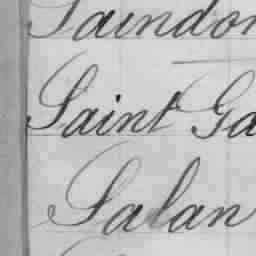 Saindon
Saint Ga
Salan